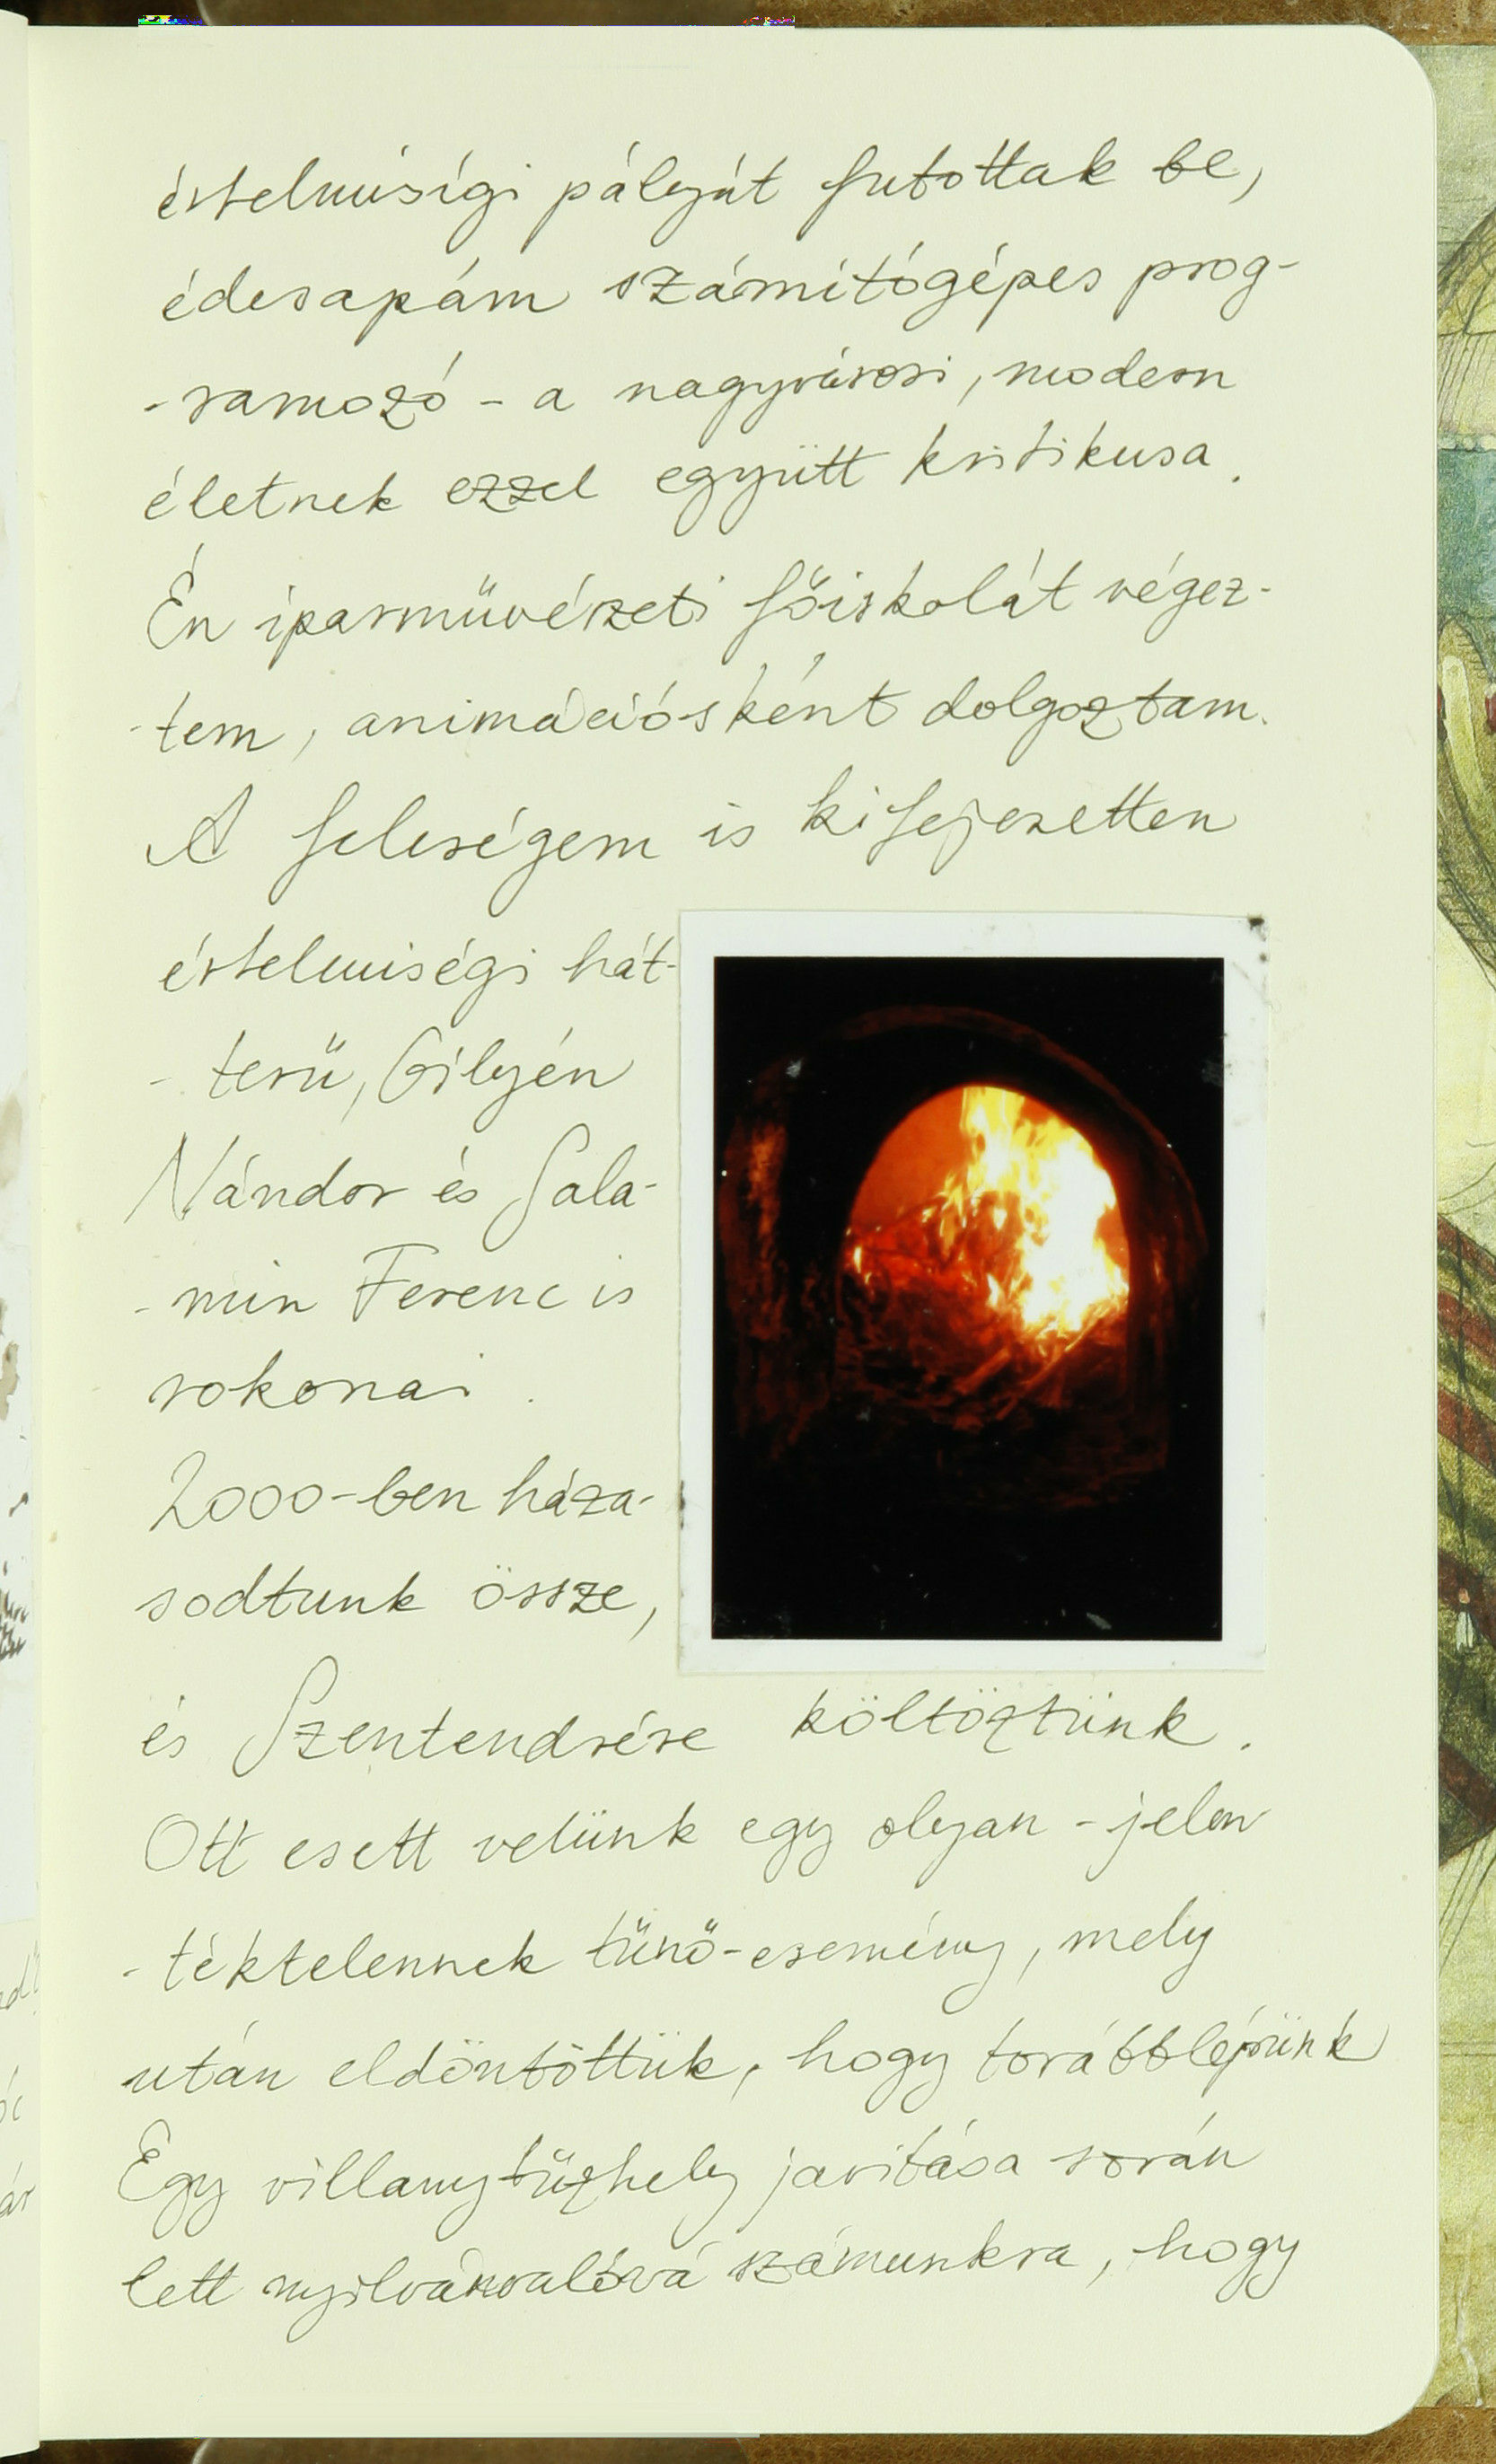 értelmiségi pályát futottak be,
édesapám számítógépes prog-
-ramozó - a nagyvárosi, modern
életnek ezzel együtt kritikusa.
Én iparművészeti főiskolát végez-
-tem, animációsként dolgoztam.
A feleségem is kifejezetten
értelmiségi hát-
- terű, Gilyén
Nándor és Sala-
-min Ferenc is
rokonai.
2000-ben háza-
sodtunk össze,
és Szentendrére költöztünk.
Ott esett velünk egy olyan - jelen
-téktelennek tűnő - esemény, mely
után eldöntöttük, hogy továbblépünk
Egy villanytűzhely javítása során
lett nyilvánvalóvá számunkra, hogy